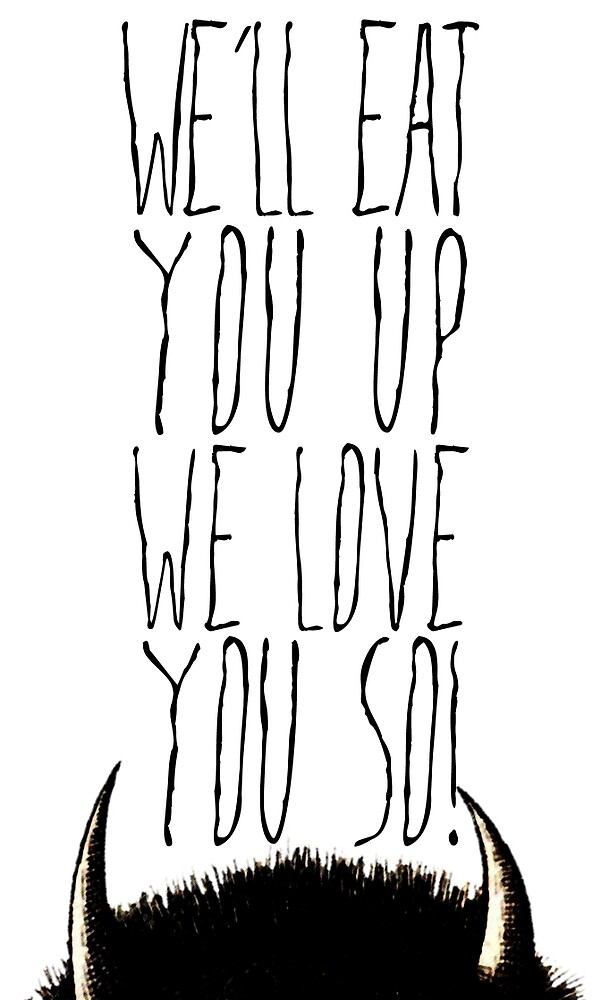 WE'LL EAT
YOU UP
WE LOVE
YOU SO!